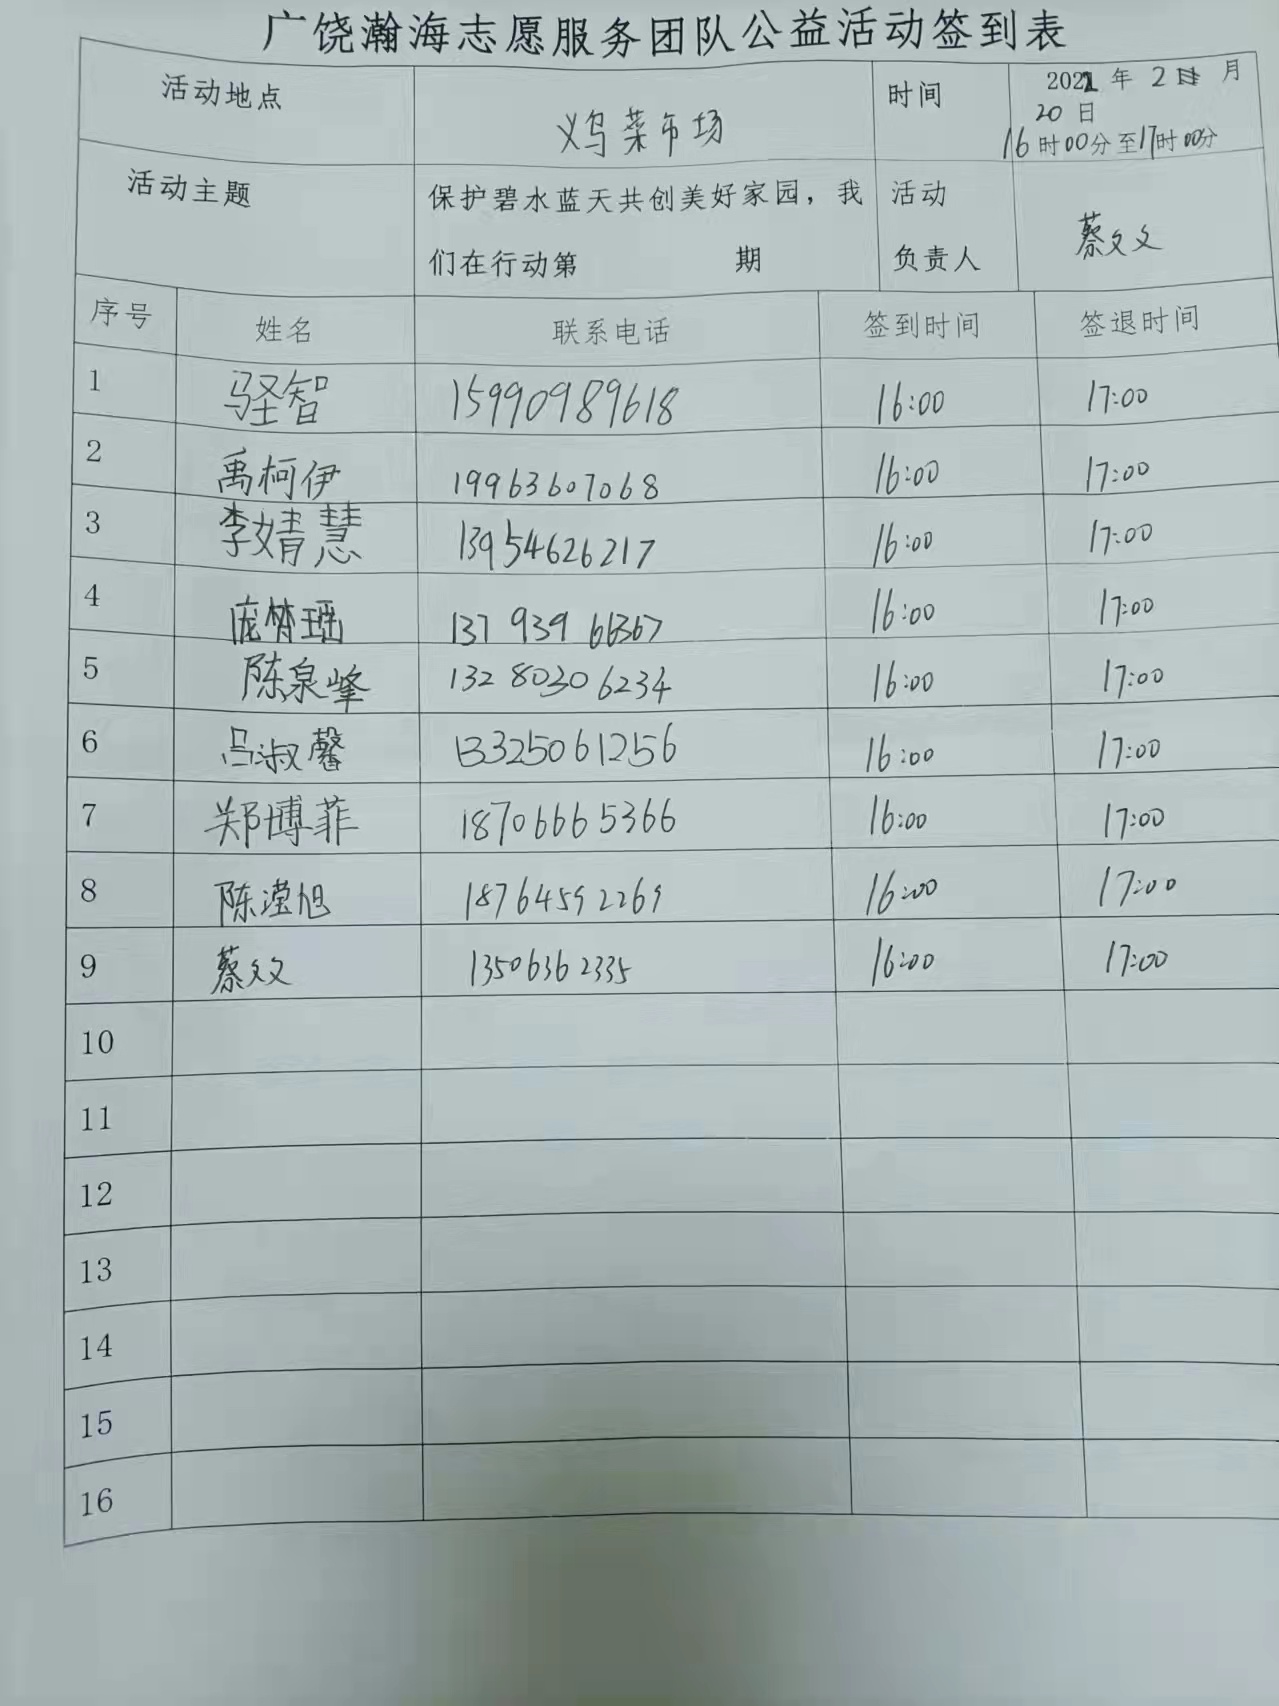 广饶瀚海志愿服务团队公益活动签到表
活动地点 义乌菜市场 时间 2022年2月20日16时00分至17时00分
活动主题 保护碧水蓝天共创美好家园，我们在行动第 期 活动负责人 蔡文义
序号 姓名 联系电话 签到时间 签退时间
1 智 15990989618 16:00 17:00
2 禹柯伊 19963607068 16:00 17:00
3 李婧慧 13954626217 16:00 17:00
4 庞梦瑶 137 939 66367 16:00 17:00
5 陈泉峰 132 8030 6234 16:00 17:00
6 吕淑馨 13325061256 16:00 17:00
7 郑博菲 18706665366 16:00 17:00
8 陈滢旭 18764592269 16:00 17:00
9 蔡文义 13506362335 16:00 17:00
10
11
12
13
14
15
16